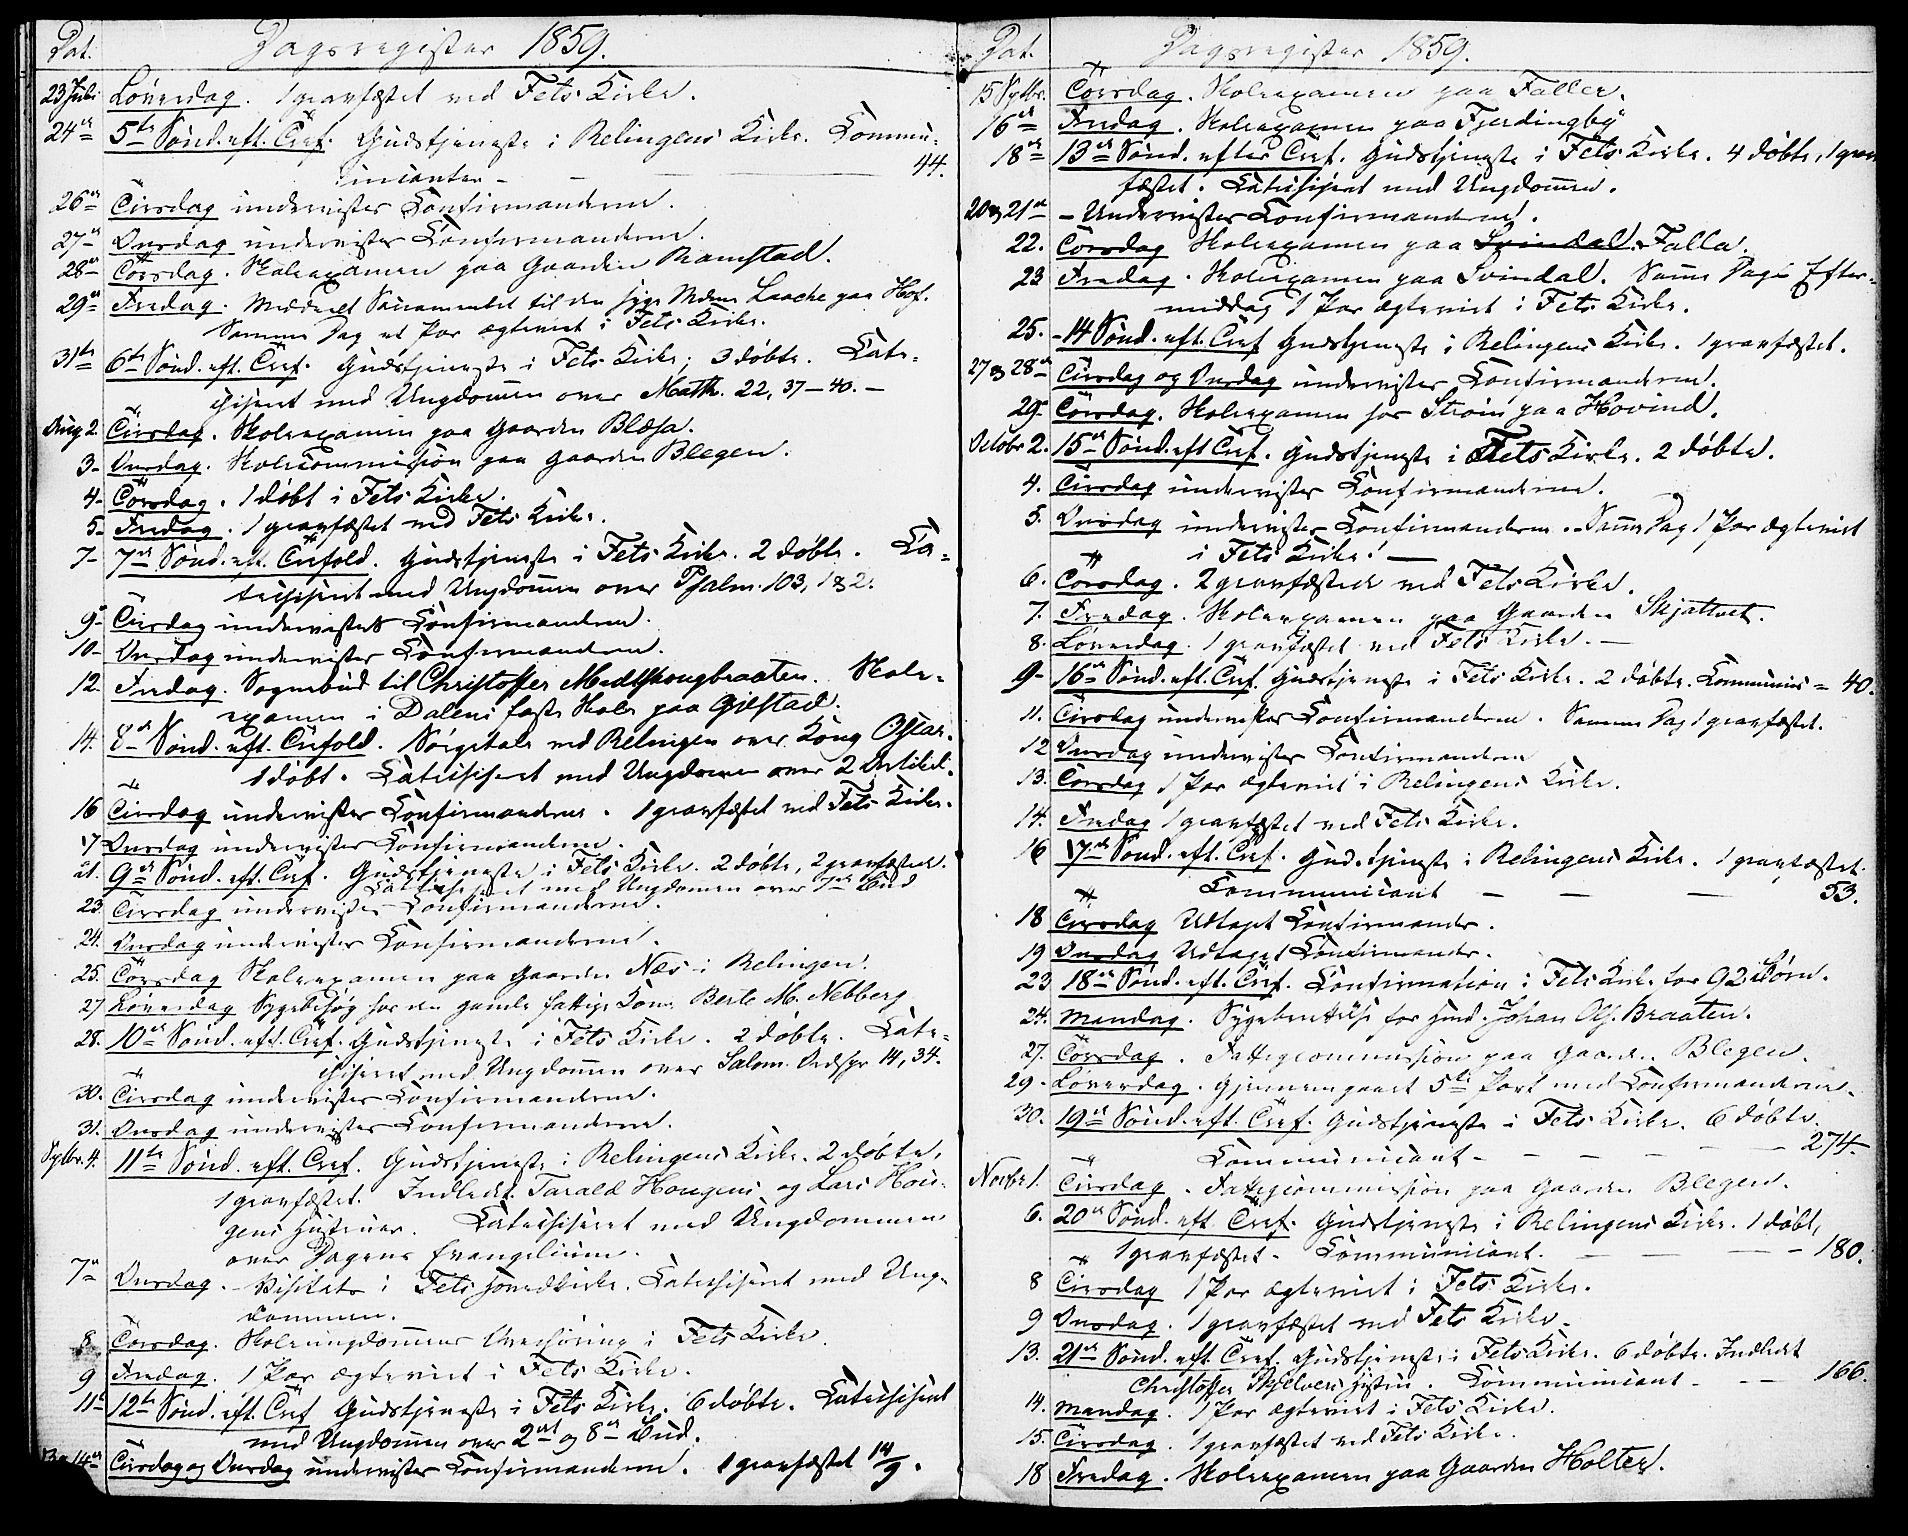 Dat. Dagsregister 1859.
23 Juli Løverdag. 1 gravfæstet ved Fets Kirke.
24de 5te Sønd. eft. Tref. Gudstjeneste i Relingens Kirke. Commu-
nicanter - - 44.
26de Tirsdag underviistes Confirmanderne.
27de Onsdag underviistes Confirmanderne.
28de Torsdag. Skoleexamen paa Gaarden Ramstad.
29de Fredag. Meddeelt Sacramentet til den syge Madme Laache paa Hof.
Samme Dag et Par ægteviet i Fets Kirke.
31te 6te Sønd. eft. Tref. Gudstjeneste i Fets Kirke; 3 døbte. Cate-
chiseret med Ungdommen over Matth. 22, 37-40. -
Aug 2. Tirsdag. Skoleexamen paa Gaarden Blæsa.
3- Onsdag. Skolecommission paa Gaarden Blegen.
4- Torsdag. 1 døbt i Fets Kirke.
5- Fredag. 1 gravfæstet ved Fets Kirke.
7- 7de Sønd. eft. Trefold. Gudstjeneste i Fets Kirke. 2 døbte. Ca-
techiseret med Ungdommen over Psalm. 103, 1 og 2.
9- Tirsdag underviistes Confirmanderne.
10- Onsdag underviistes Confirmanderne.
12. Fredag. Sognebud til Christoffer Medtskougbraaten. Skole-
examen i Dalens faste Skole paa Gjelstad.
14. 8de Sønd. eft. Trefold. Sørgetale ved Relingen over Kong Oscar.
1 døbt. Catechiseret med Ungdommen over 2 Artikel.
16 Tirsdag underviistes Confirmanderne. 1 gravfæstet ved Fets Kirke.
17 Onsdag underviistes Confirmanderne.
21. 9de Sønd. eft. Tref. Gudstjeneste i Fets Kirke. 2 døbte, 2 gravfæstede.
Catechiseret med Ungdommen over 7de Bud
23. Tirsdag underviistes Confirmanderne.
24. Onsdag underviistes Confirmanderne.
25. Torsdag Skoleexamen paa Gaarden Næs i Relingen.
27 Løverdag Sygebesøg hos den gamle fattige Kone Berte M. Nebberg
28. 10de Sønd. eft. Tref. Gudstjeneste i Fets Kirke. 2 døbte. Cate-
chiseret med Ungdommen over Salom. Ordspr 14, 34.
30. Tirsdag underviistes Confirmanderne.
31. Onsdag underviistes Confirmanderne.
Septbr. 4. 11te Sønd. eft. Tref. Gudstjeneste i Relingens Kirke. 2 døbte,
1 gravfæstet. Indledt. Tarald Hougens og Lars Hou-
gens Hustruer. Catechiseret med Ungdommen
over Dagens Evangelium.
7de Onsdag. Visitats i Fets Hovedkirke. Catechiseret med Ung-
dommen.
8 Torsdag. Skoleungdommens Overhøring i Fets Kirke.
9 Fredag. 1 Par ægteviet i Fets Kirke.
11te 12te Sønd. eft. Tref. Gudstjeneste i Fets Kirke. 6 døbte. Catechiseret
med Ungdommen over 2det og 8de Bud.
13 og 14de Tirsdag og Onsdag underviistes Confirmanderne. 1 gravfæstet 14/9.
Dat. Dagsregister 1859.
15 Septbr. Torsdag. Skoleexamen paa Faller.
16de Fredag. Skoleexamen paa Fjerdingby
18de 13de Sønd. efter Tref. Gudstjeneste i Fets Kirke. 4 døbte, 1 grav
fæstet. Catechiseret med Ungdommen.
20 og 21de - Underviistes Confirmanderne.
22. Torsdag Skoleexamen paa Svindal. Falla.
23 Fredag. Skoleexamen paa Svindal. Samme Dags Efter-
middag 1 Par ægteviet i Fets Kirke.
25. 14 Sønd. eft. Tref Gudstjeneste i Relingens Kirke. 1 gravfæstet.
27 og 28de Tirsdag og Onsdag underviistes Confirmanderne.
29. Torsdag. Skoleexamen for Strøm paa Hovind.
Octobr 2. 15de Sønd. eft Tref. Gudstjeneste i Fets Kirke. 2 døbte.
4. Tirsdag underviistes Confirmanderne.
5. Onsdag underviistes Confirmanderne. - Samme Dag 1 Par ægteviet
i Fets Kirke. -
6. Torsdag. 2 gravfæstede ved Fets Kirke.
7. Fredag. Skoleexamen paa Gaarden Skjattvet.
8. Løverdag. 1 gravfæstet ved Fets Kirke. -
9- 16de Sønd. eft. Tref. Gudstjeneste i Fets Kirke. 2 døbte. Communic = 40.
11. Tirsdag underviistes Confirmanderne. Samme Dag 1 gravfæstet.
12 Onsdag underviistes Confirmanderne
13. Torsdag 1 Par ægteviet i Relingens Kirke.
14. Fredag 1 gravfæstet ved Fets Kirke.
16 17de Sønd. eft. Tref. Gudstjeneste i Relingens Kirke. 1 gravfæstet.
Communicant - - - 53.
18 Tirsdag Udtaget Confirmander.
19 Onsdag Udtaget Confirmander.
23 18de Sønd. eft. Tref. Confirmation i Fets Kirke for 92 Børn.
24. Mandag. Sygeberettelse for Huusm. Johan Ols. Braaten.
27. Torsdag. Fattigcommission paa Gaarden Blegen.
29. Løverdag. Gjennemgaaet 5te Part med Confirmanderne.
30. 19de Sønd. eft. Tref. Gudstjeneste i Fets Kirke. 6 døbte.
Communicant - - - - 274.
Novbr 1. Tirsdag. Fattigcommission paa Gaarden Blegen.
6. 20de Sønd. eft. Tref. Gudstjeneste i Relingens Kirke. 1 døbt,
1 gravfæstet. Communicant. - - - 180.
8 Tirsdag 1 Par ægteviet i Fets Kirke.
9 Onsdag. 1 gravfæstet ved Fets Kirke.
13. 21de Sønd. eft. Tref. Gudstjeneste i Fets Kirke. 6 døbte. Indledt
Christoffer Hustru. Communicant - - 166.
14. Mandag. 1 Par ægteviet i Fets Kirke.
15. Tirsdag. 1 gravfæstet ved Fets Kirke.
18 Fredag. Skoleexamen paa Gaarden Holter.